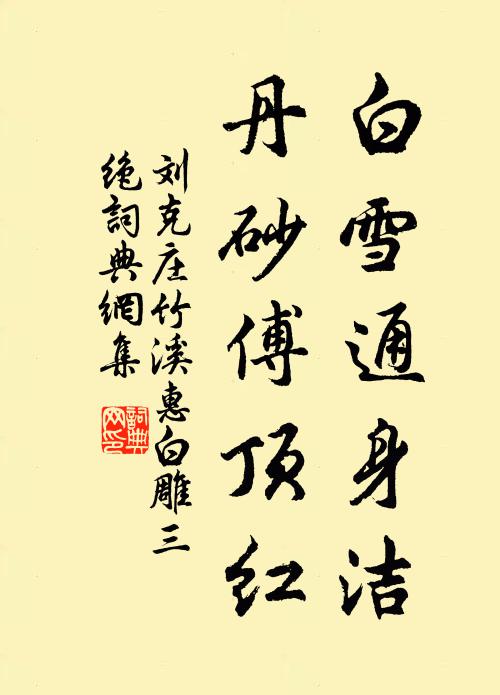 白雪通身洁
丹砂傅顶红
刘克庄竹溪惠白雕三
绝词典網集
詞典网印